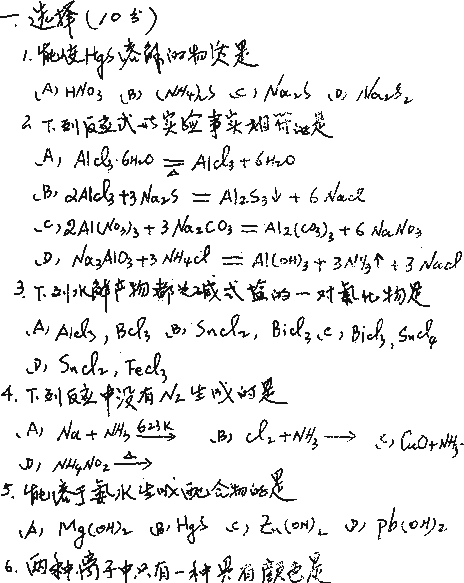 一. 选择(10分)
1. 能使HgS溶解的物质是
(A) HNO3 (B) (NH4)2S (C) Na2S (D) Na2S2
2. 下列反应式与实验事实相符的是
(A) AlCl3·6H2O =△= AlCl3+6H2O
(B) 2AlCl3+3Na2S = Al2S3↓+6NaCl
(C) 2Al(NO3)3+3Na2CO3 = Al2(CO3)3+6NaNO3
(D) Na3AlO3+3NH4Cl = Al(OH)3+3NH3↑+3NaCl
3. 下列水解产物都是碱式盐的一对氯化物是
(A) AlCl3, BCl3 (B) SnCl2, BiCl3 (C) BiCl3, SnCl4
(D) SnCl2, FeCl3
4. 下列反应中没有N2生成的是
(A) Na+NH3 623K→ (B) Cl2+NH3 → (C) CuO+NH3
(D) NH4NO2 △→
5. 能溶于氨水生成配合物的是
(A) Mg(OH)2 (B) HgS (C) Zn(OH)2 (D) Pb(OH)2
6. 两种离子中只有一种具有颜色是